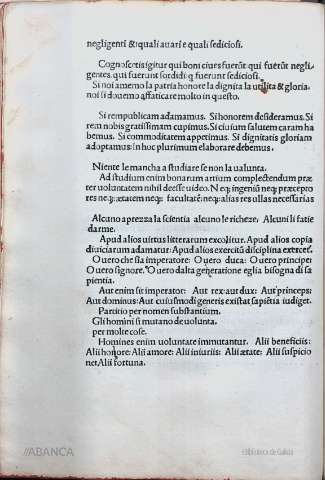 negligenti & iquali auari e quali sediciosi.
Cognoscetis igitur qui boni ciues fuerūt qui fuerūt negli,
gentes. qui fuerunt sordidi q̃ fuerunt sediciosi.
Si noi amemo la patria honore la dignita la utilita & gloria
noi si douemo affaticare molto in questo.
Si rempublicam adamamus. Si honorem desideramus. Si
rem nobis gratissimam cupimus. Si ciuium salutem caram ha
bemus. Si commoditatem appetimus. Si dignitatis gloriam
adoptamus in hoc plurimum elaborare debemus.
Niente le mancha a studiare se non la ualunta.
Ad studium enim bonarum artium complectendum præ
ter uoluntatem nihil deesse uideo. Neq; ingeniū neq; præcepto
res neq; ætatem neq; facultatē neq; alias res ullas necessarias
Alcuno aprezza la scientia alcuno le richeze. Alcuni li fatie
darme.
Apud alios uirtus litterarum excolitur. Apud alios copia
diuiciarum adamatur. Apud alios exercitū disciplina exercet̃.
Ouero che sia imperatore: Ouero duca: Ouero principe:
Ouero signore. Ouero dalta generatione eglia bisogna di sa
pientia.
Aut enim sit imperator: Aut rex: aut dux: Aut princeps:
Aut dominus: Aut cuiusmodi generis existat sapiētia iudiget.
Partitio per nomen substantium.
Gli homini si mutano de uolunta.
per molte cose.
Homines enim uoluntate immutantur. Alii beneficiis:
Alii honore: Alii amore: Alii iniuriis: Alii ætate: Alii suspicio
ne: Alii fortuna.
//ABANCA
Biblioteca de Galicia